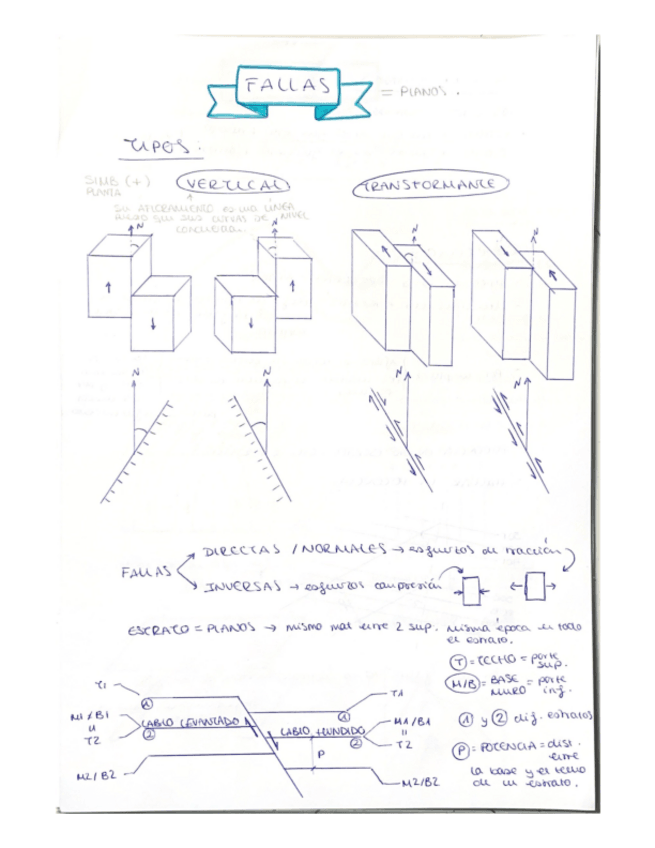 FALLAS = PLANOS.
TIPOS:
SIMB (+) PLANTA
VERTICAL
TRANSFORMANTE
SU AFLORAMIENTO es una LINEA
RECTA SIN SUS CURVAS DE NIVEL
N
N
N
N
N
N
N
N
DIRECTAS / NORMALES → esfuerzos de tracción
FALLAS
INVERSAS → esfuerzos compresión
ESTRATO = PLANOS → mismo mat entre 2 sup. misma época en todo
el estrato.
T = TECHO = parte
sup.
M/B = BASE = parte
MURO inf.
1 y 2 dif. estratos
P = POTENCIA = dist.
entre
la base y el techo
de un estrato.
T1
1
M1 / B1
=
T2
LABIO LEVANTADO
2
M2 / B2
T1
1
LABIO HUNDIDO
2
M1/B1
=
T2
P
M2/B2